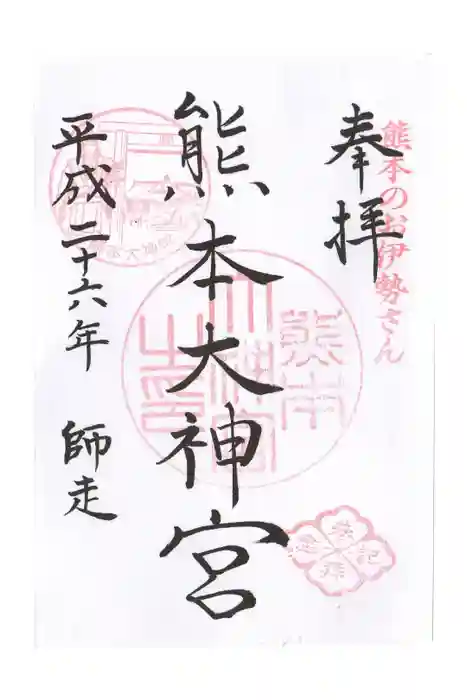 熊本のお伊勢さん
奉拝
熊本大神宮
熊本
大神宮
之印
平成二十六年 師走